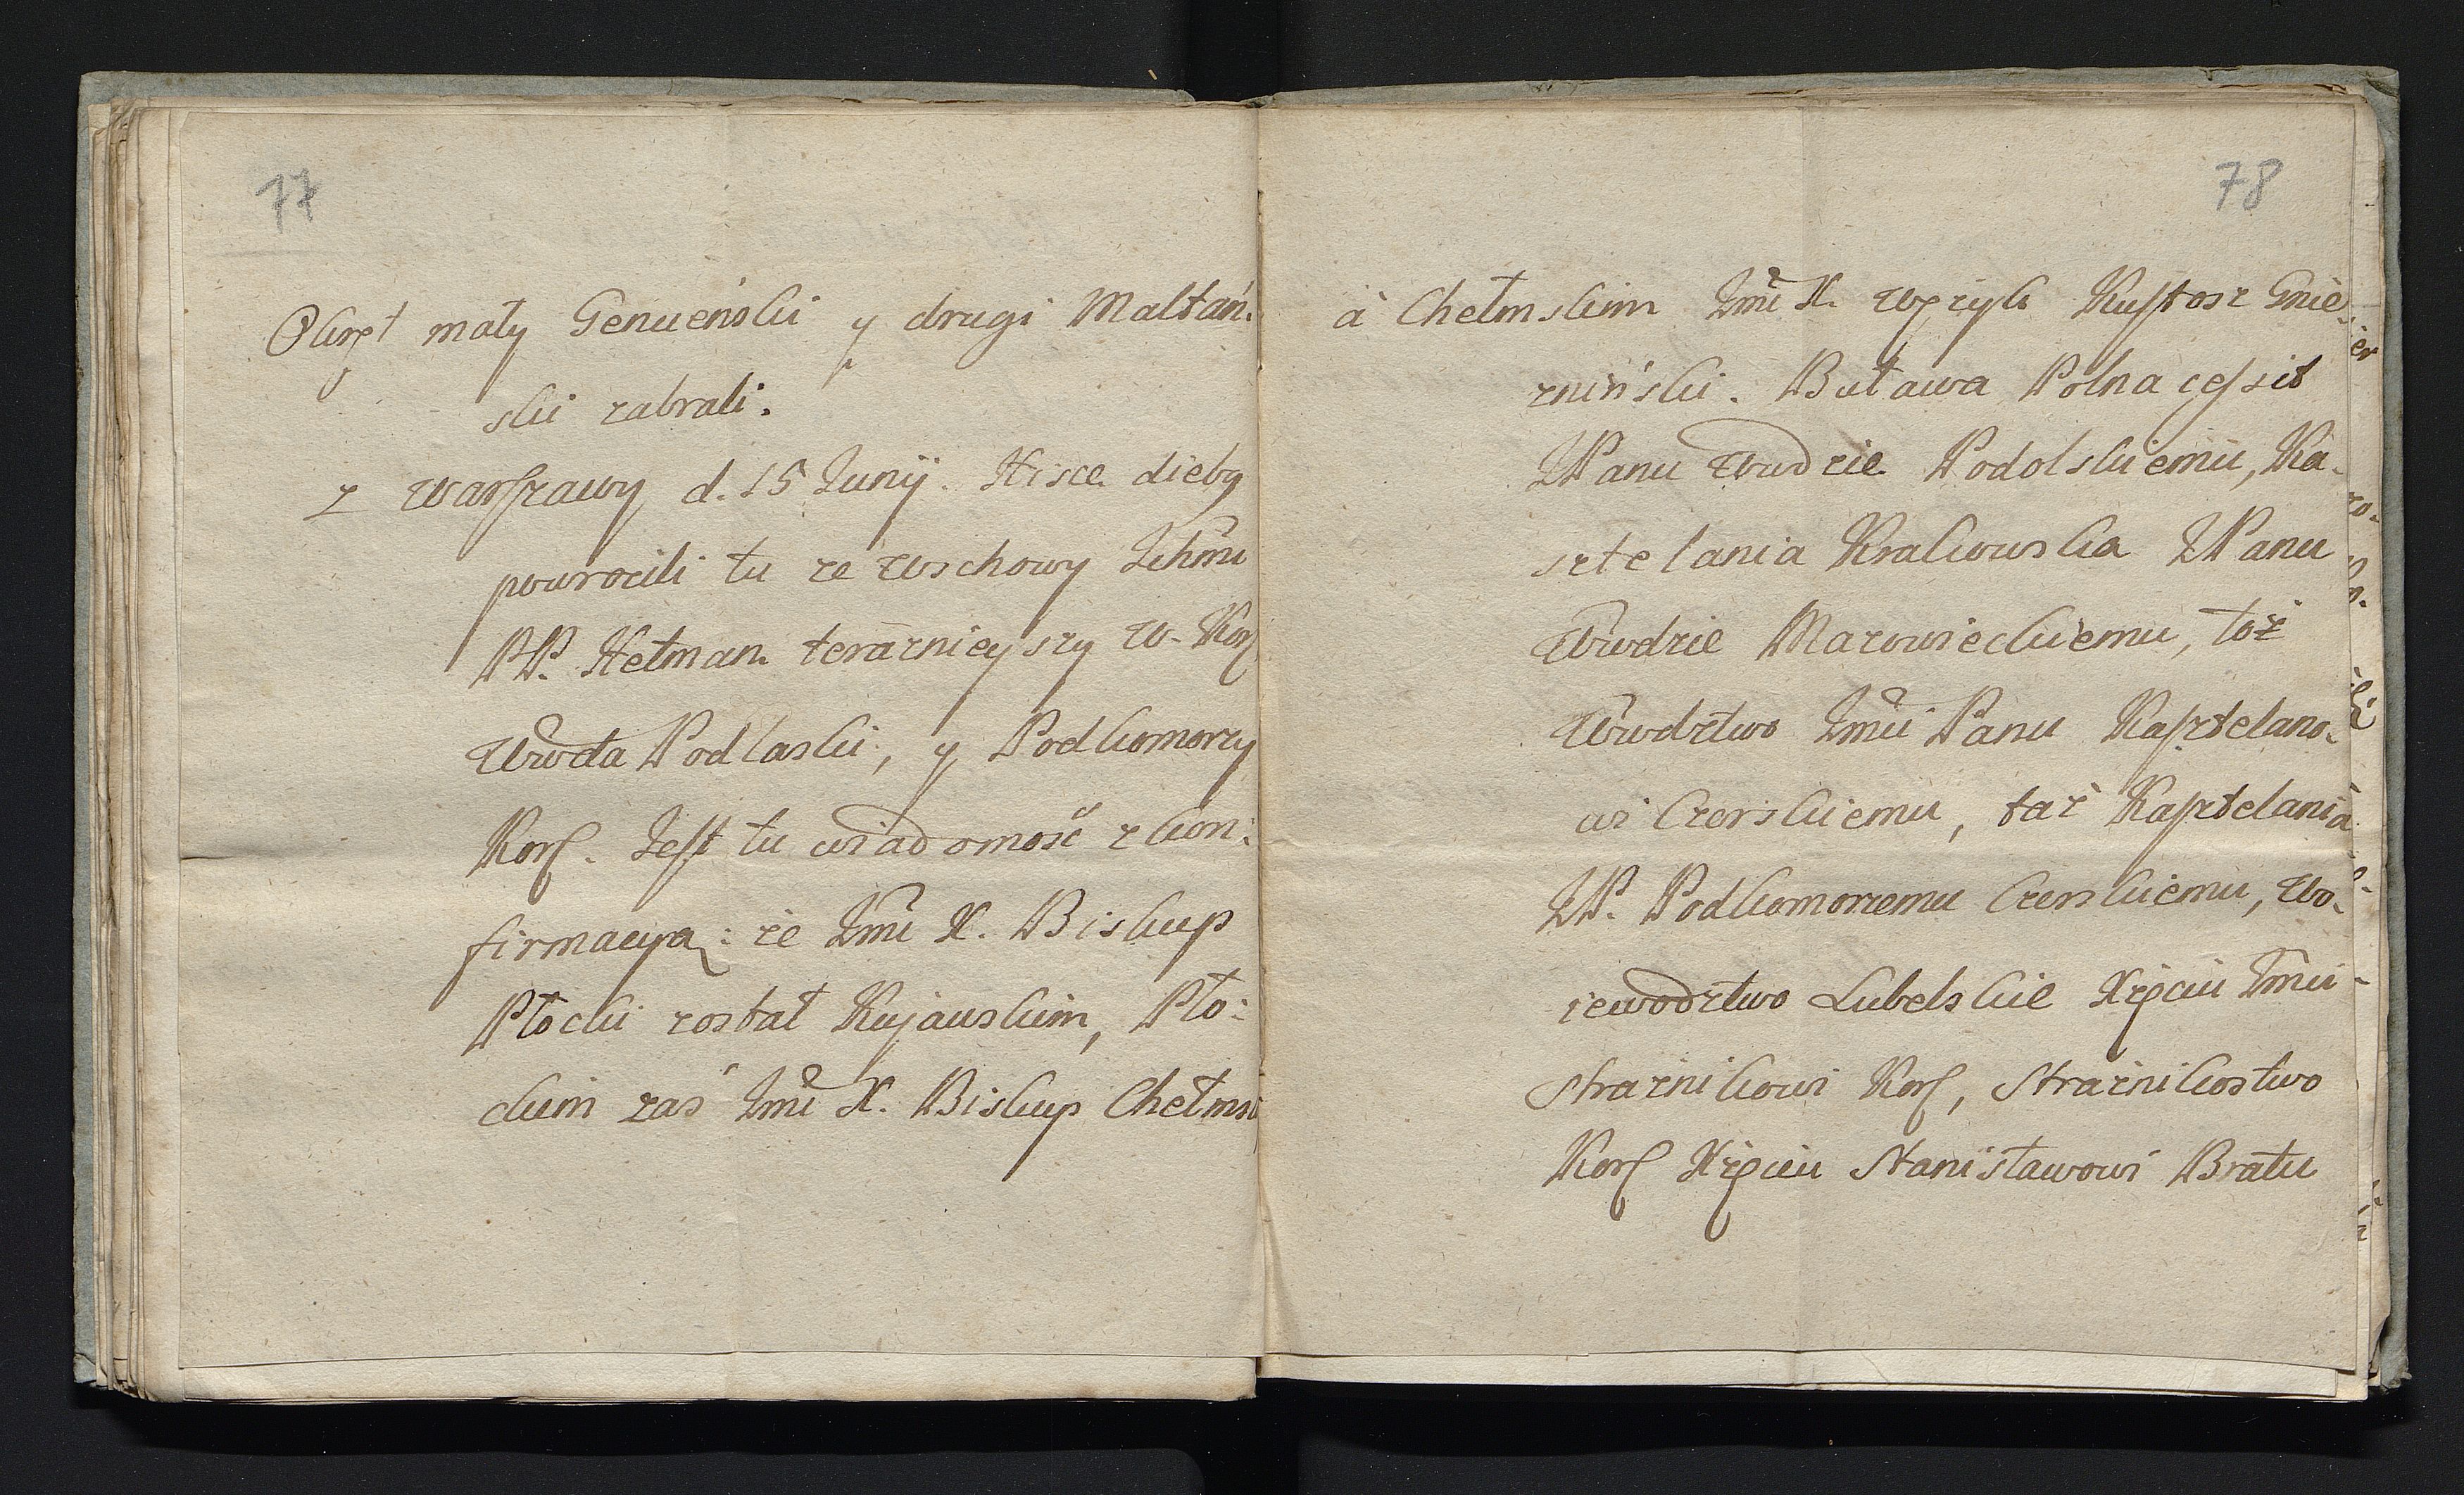 77
Okręt mały Genueński y drugi Maltań:
ski zabrali.
z Warszawy d. 15 Junÿ. Hisce dieby
powrocili tu ze Wschowy Ichmć
PP. Hetman teraznieyszy W. Kor.
Wwda Podlaski, y Podkomorzy
Kor. Jest tu wiadomość z kon:
firmacyą: że Jmć X. Biskup
Płocki został Kujawskim, Pło:
ckim zaś Jmć X. Biskup Chełmń
78
à Chełmskim Jmć X. Wężyk Kustosz Gnie-
znieński. Buława Polna cessit
JPanu Wwdzie Podolskiemu, Ka-
sztelania Krakowska JPanu
Wwdzie Mazowieckiemu, toż
Wwdztwo Jmć Panu Kasztelano-
wi Czerskiemu, taż Kasztelania
JP. Podkomorzemu Czerskiemu, Wo-
iewodztwo Lubelskie Xżęciu Jmci
Strażnikowi Kor, Strażnikostwo
Kor Xżęciu Stanisławowi Bratu